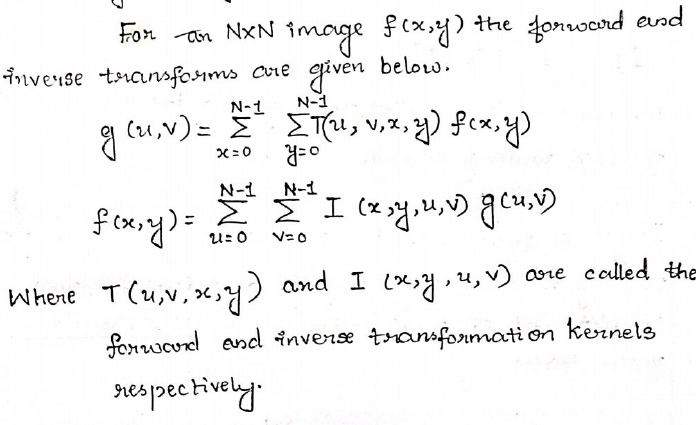 For an N×N image f(x,y) the forward and
inverse transforms are given below.
g(u,v) = N-1 Σ x=0 N-1 Σ y=0 T(u, v, x, y) f(x,y)
f(x,y) = N-1 Σ u=0 N-1 Σ v=0 I (x,y,u,v) g(u,v)
Where T(u,v,x,y) and I (x,y,u,v) are called the
forward and inverse transformation kernels
respectively.